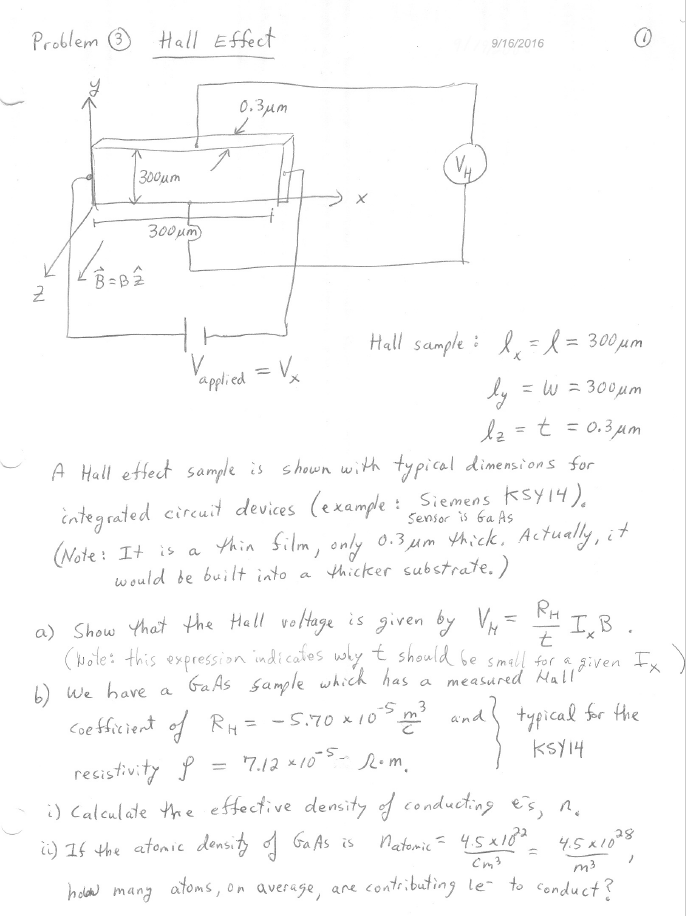 Problem ③ Hall Effect 9/16/2016 ①
y
0.3μm
300μm
V_H
x
300μm
z
B⃗ = B ẑ
V_applied = V_x
Hall sample : l_x = l = 300μm
l_y = w = 300μm
l_z = t = 0.3μm
A Hall effect sample is shown with typical dimensions for
integrated circuit devices (example : Siemens KSY14).
sensor is GaAs
(Note: It is a thin film, only 0.3μm thick. Actually, it
would be built into a thicker substrate.)
a) Show that the Hall voltage is given by V_H = R_H/t I_x B .
(Note: this expression indicates why t should be small for a given I_x)
b) We have a GaAs sample which has a measured Hall
coefficient of R_H = -5.70 × 10^-5 m³/C and } typical for the
resistivity ρ = 7.12 × 10^-5 Ω·m. } KSY14
i) Calculate the effective density of conducting e⁻s, n.
ii) If the atomic density of GaAs is n_atomic = 4.5 × 10^22/cm³ = 4.5 × 10^28/m³ ,
how many atoms, on average, are contributing 1e⁻ to conduct?